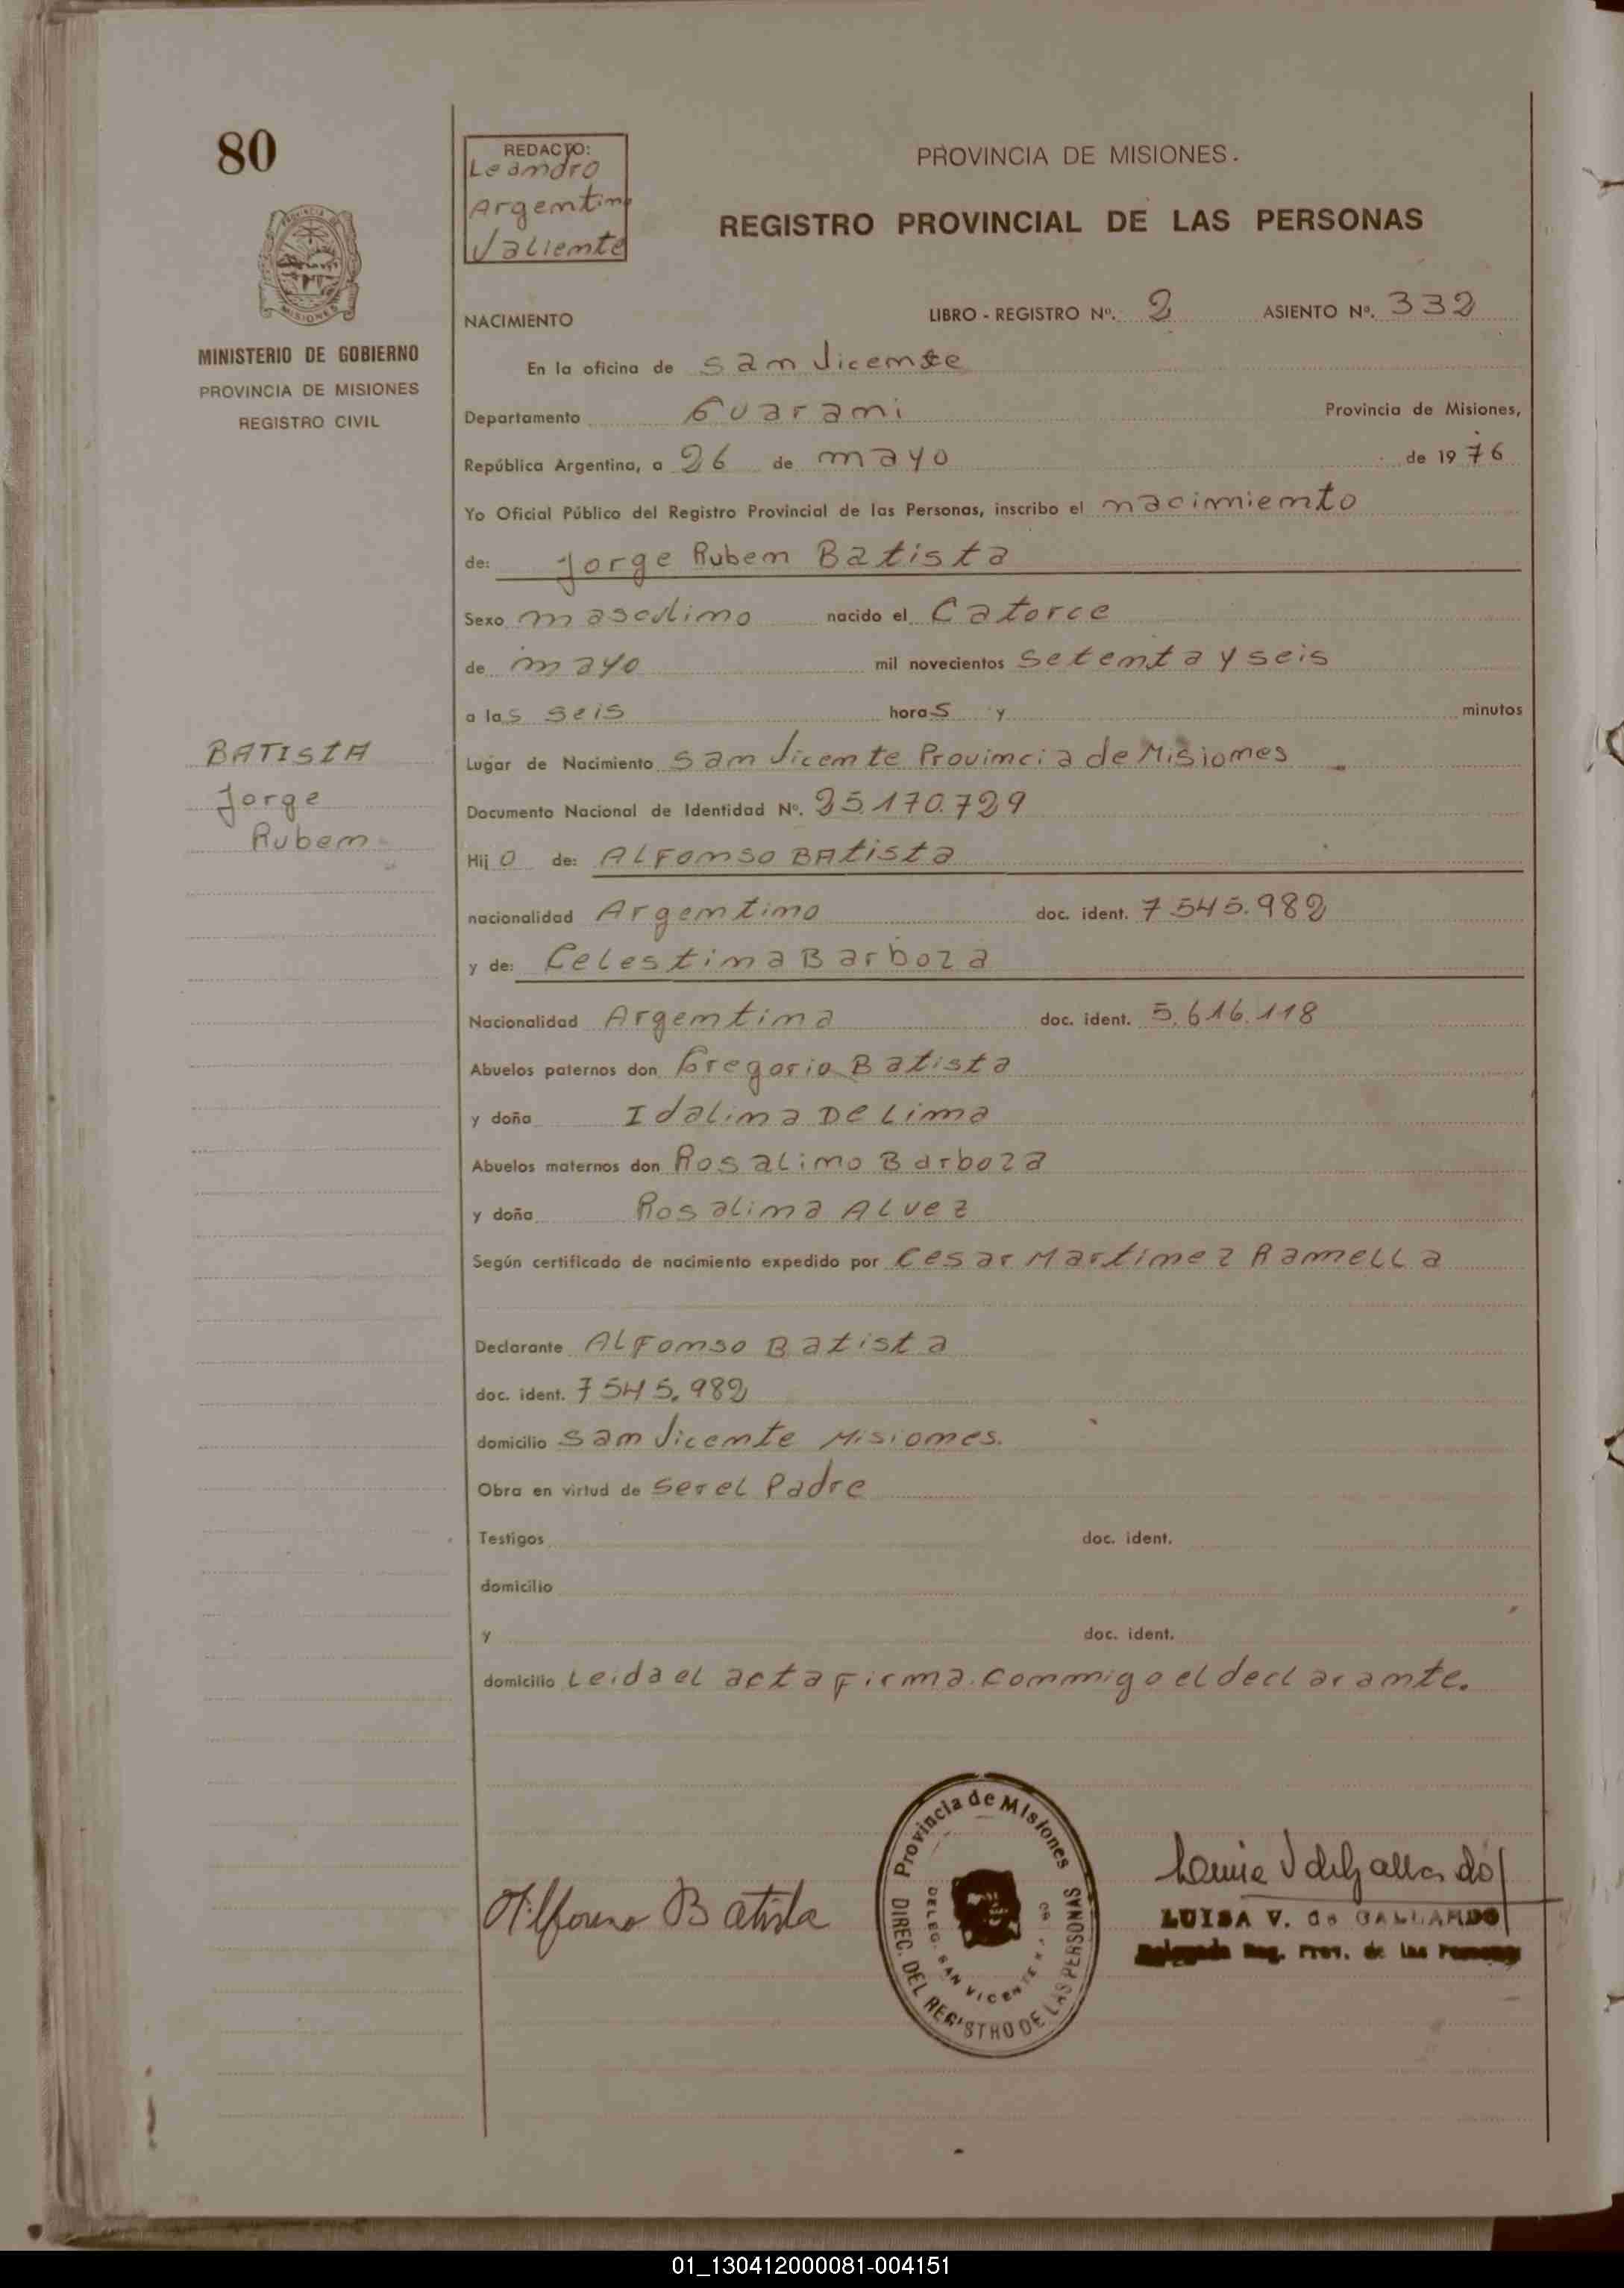 80
REDACTO:
Leandro
Argentino
Valiente
PROVINCIA DE MISIONES.
REGISTRO PROVINCIAL DE LAS PERSONAS
MISIONES
MINISTERIO DE GOBIERNO
PROVINCIA DE MISIONES
REGISTRO CIVIL
NACIMIENTO LIBRO - REGISTRO Nº. 2 ASIENTO Nº. 332
En la oficina de San Vicente
Departamento Guarani Provincia de Misiones,
República Argentina, a 26 de mayo de 1976
Yo Oficial Público del Registro Provincial de las Personas, inscribo el nacimiento
de: Jorge Ruben Batista
Sexo masculino nacido el Catorce
de mayo mil novecientos setenta y seis
a las seis horas y minutos
BATISTA
Jorge
Ruben
Lugar de Nacimiento San Vicente Provincia de Misiones
Documento Nacional de Identidad Nº. 25.170.729
Hijo de: ALFonso BAtista
nacionalidad Argentino doc. ident. 7.545.982
y de: Celestina Barboza
Nacionalidad Argentina doc. ident. 5.616.118
Abuelos paternos don Gregorio Batista
y doña Idalina De Lima
Abuelos maternos don Rosalino Barboza
y doña Rosalina ALvez
Según certificado de nacimiento expedido por Cesar Martinez RameLLa
Declarante ALFonso Batista
doc. ident. 7545.982
domicilio San Vicente Misiones.
Obra en virtud de ser el Padre
Testigos doc. ident.
domicilio
y doc. ident.
domicilio Leida el acta Firma conmigo el declarante.
Alfonso Batista
Provincia de Misiones
DIREC. DEL REGISTRO DE LAS PERSONAS
DELEG. SAN VICENTE
LUISA V. de GALLARDO
Delegada Reg. Prov. de las Personas
01_130412000081-004151